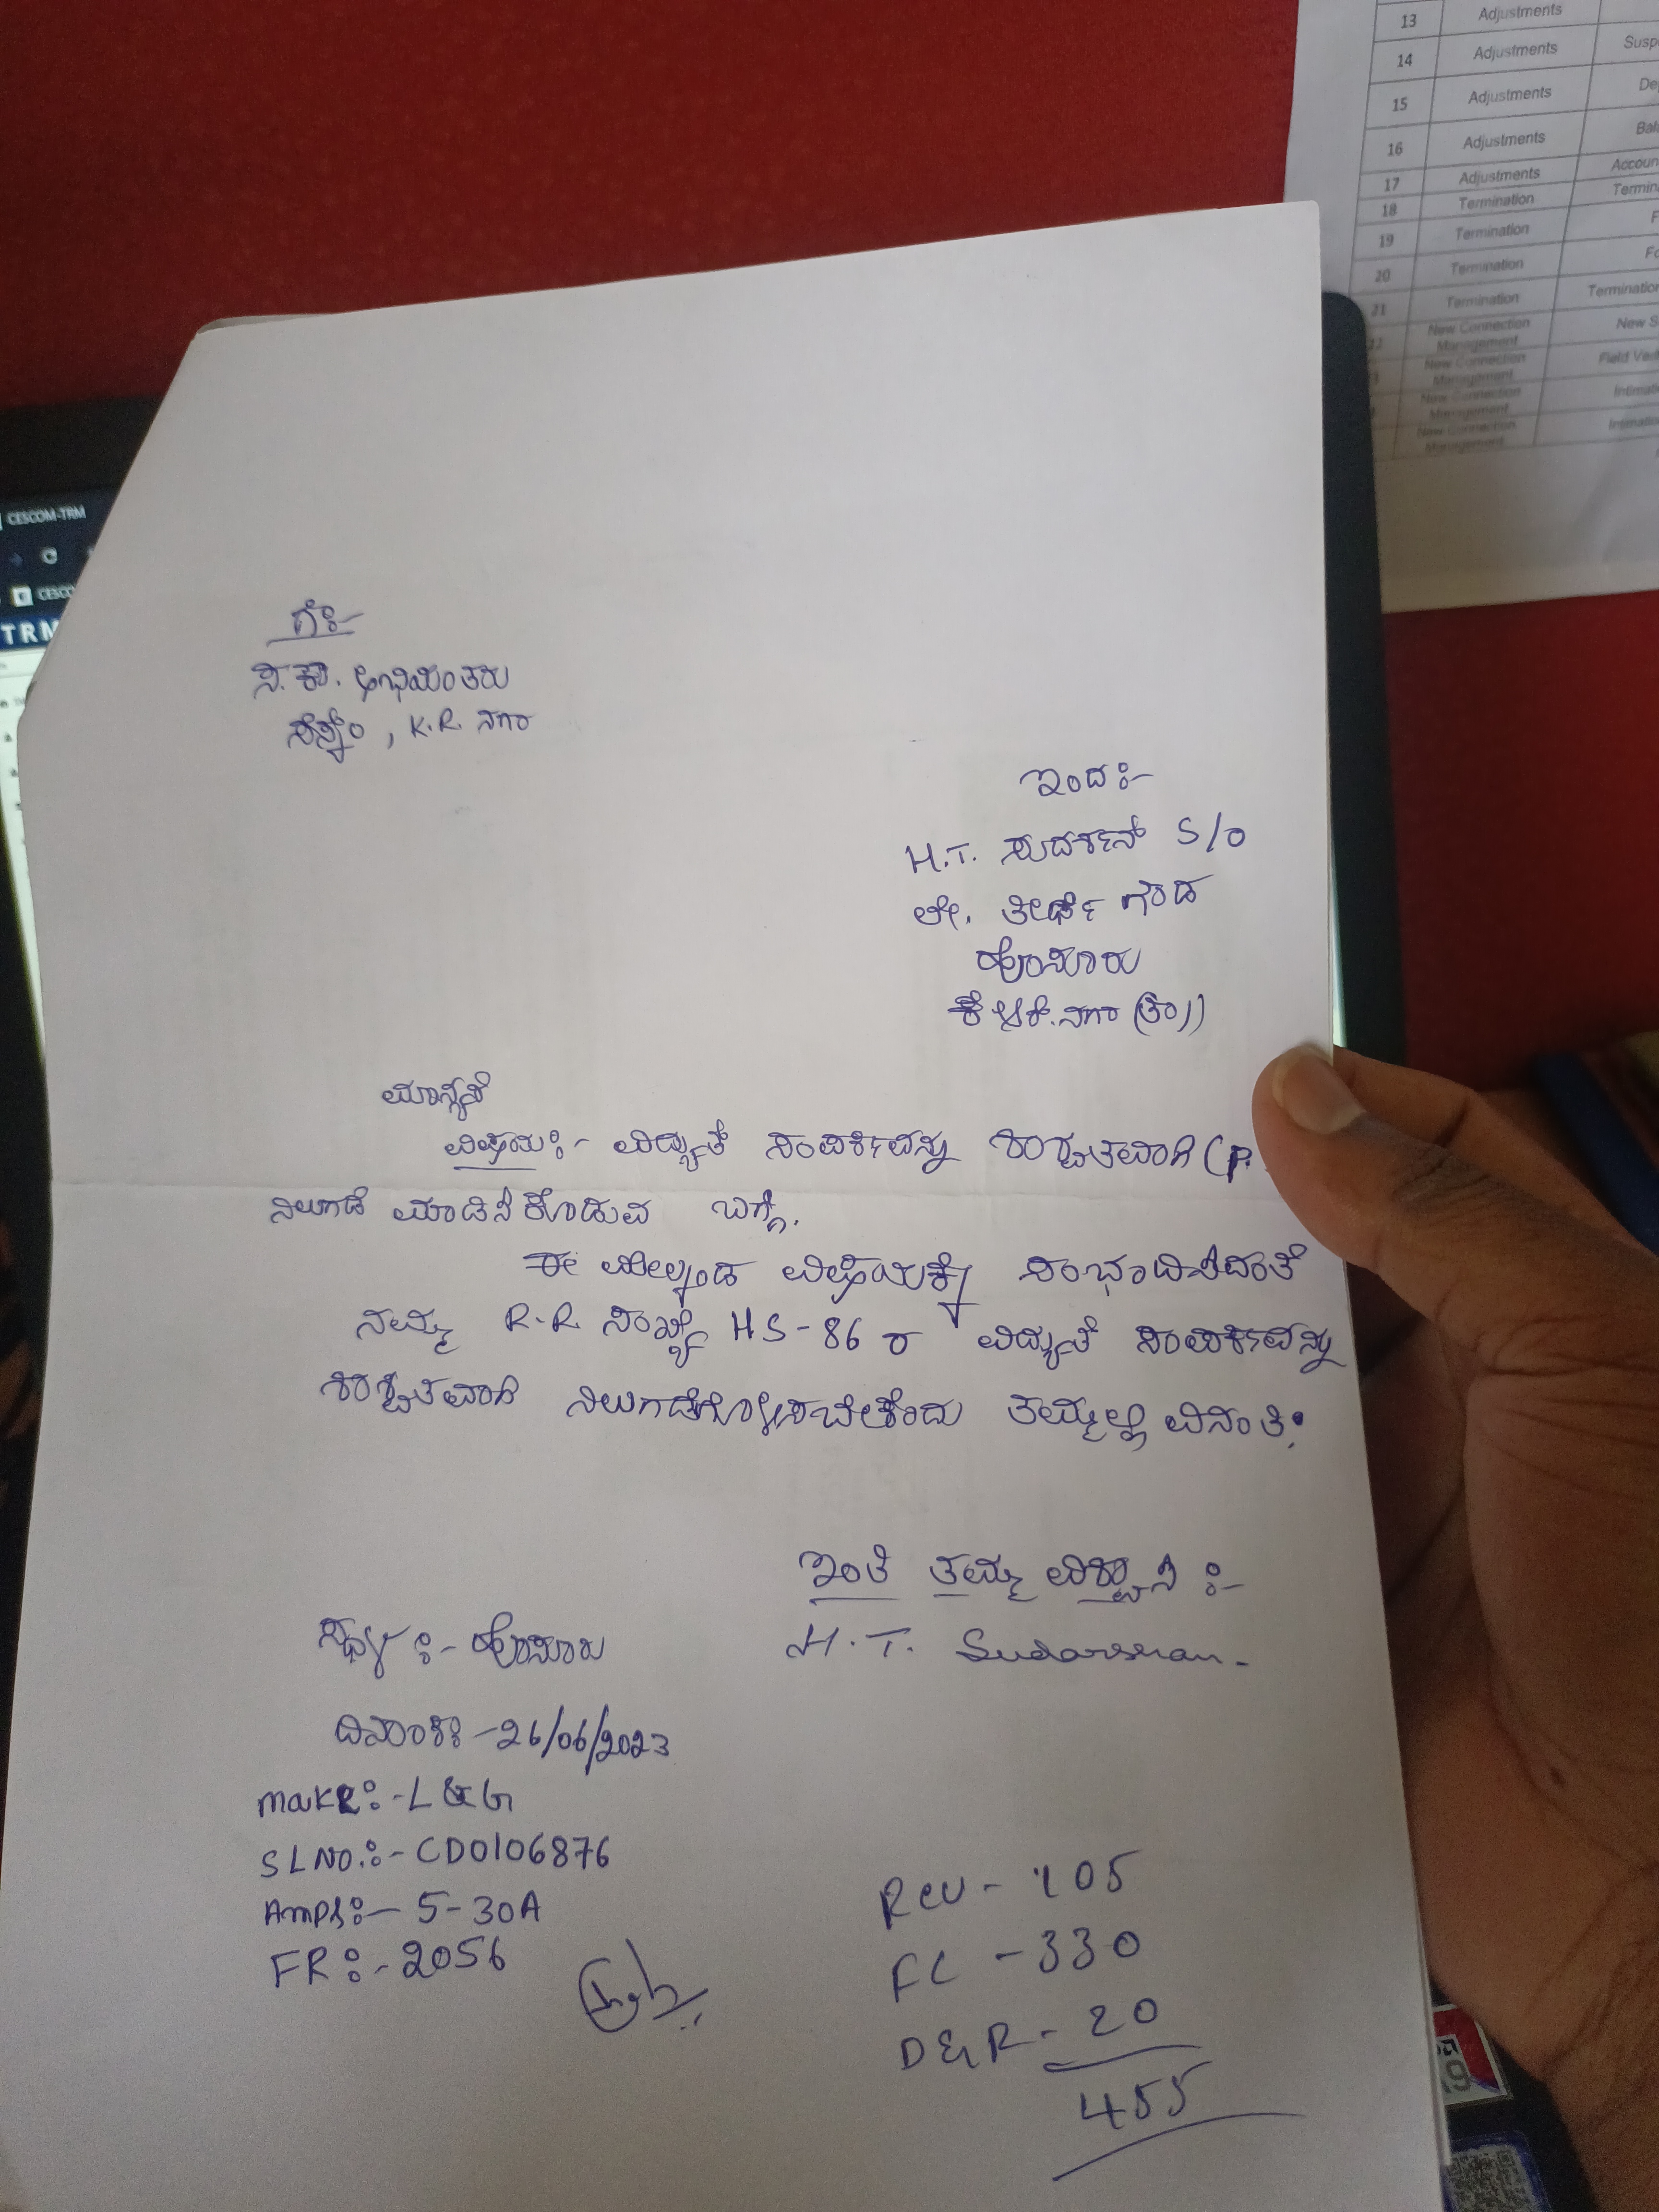 13 Adjustments
14 Adjustments
15 Adjustments
16 Adjustments
17 Adjustments
18 Termination
19 Termination
20 Termination
21 Termination
New Connection Management New S
New Connection Management
New Connection Management
New Connection Management
CESCOM-TRM
TRM
ಗೆ:-
ಸ.ಕಾ. ಅಭಿಯಂತರು
ಸೆಸ್ಕಂ, K.R. ನಗರ
ಇಂದ:-
H.T. ಸುದರ್ಶನ್ S/o
ಲೇ. ತೀರ್ಥೆಗೌಡ
ಹೊಸೂರು
ನಗರ (ತಾ))
ಮಾನ್ಯರೆ
ವಿಷಯ:- ವಿದ್ಯುತ್ ಸಂಪರ್ಕವನ್ನು ಶಾಶ್ವತವಾಗಿ (P.
ನಿಲುಗಡೆ ಮಾಡಿಸಿಕೊಡುವ ಬಗ್ಗೆ.
ಈ ಮೇಲ್ಕಂಡ ವಿಷಯಕ್ಕೆ ಸಂಭಂದಿಸಿದಂತೆ
ನಮ್ಮ R.R. ಸಂಖ್ಯೆ HS-86 ರ ವಿದ್ಯುತ್ ಸಂಪರ್ಕವನ್ನು
ಶಾಶ್ವತವಾಗಿ ನಿಲುಗಡೆಗೊಳಿಸಬೇಕೆಂದು ತಮ್ಮಲ್ಲಿ ವಿನಂತಿ.
ಇಂತಿ ತಮ್ಮ ವಿಶ್ವಾಸಿ :-
H.T. Sudarshan-
ಸ್ಥಳ :- ಹೊಸೂರು
ದಿನಾಂಕ:-26/06/2023
make:-L&G
SLNO.:-CD0106876
Amps:- 5-30A
FR:-2056
Rev - 105
FC - 330
D&R - 20
455